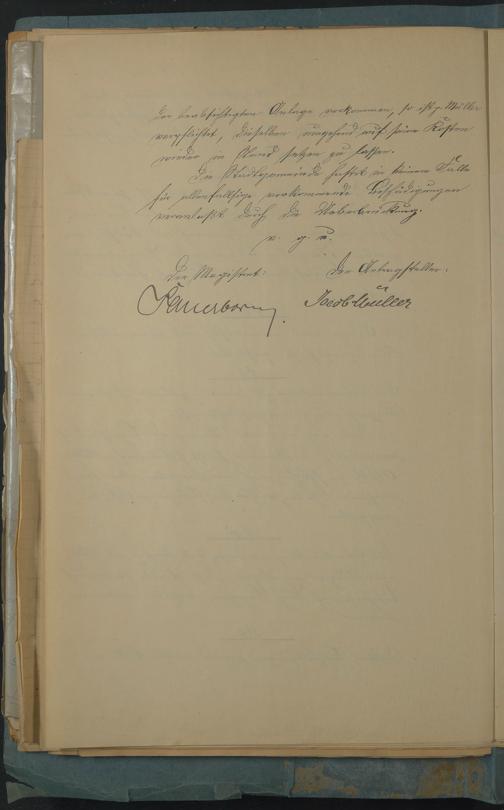 der beabsichtigten Anlage vorkommen, so ist p. Müller
verpflichtet, dieselben umgehend auf seine Kosten
wieder in Stand setzen zu lassen.
Die Stadtgemeinde haftet in keinem Falle
für allenfallsige vorkommende Beschädigungen
veranlaßt durch die Ueberbrückung.
v. g. u.
Der Magistrat: Der Antragsteller:
Fauerborn. Jacob Müller